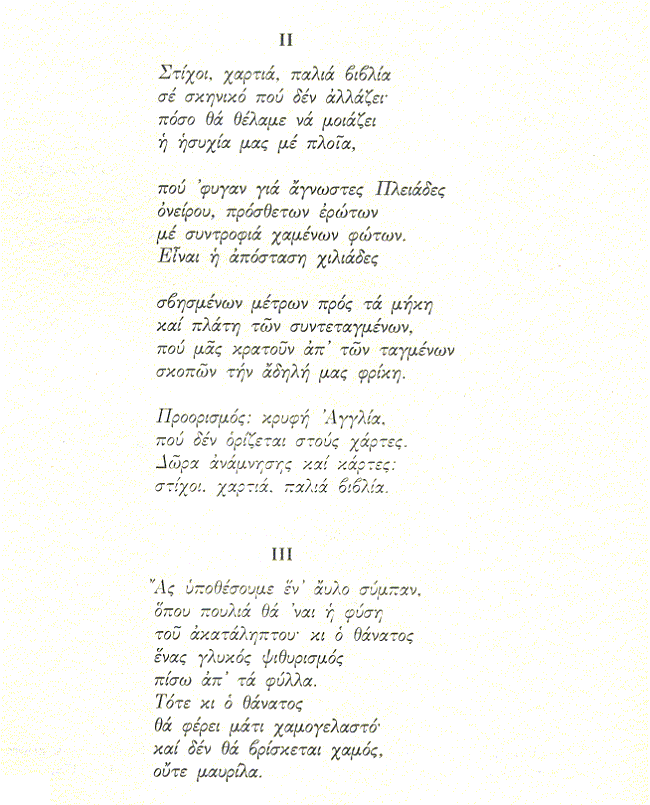 II
Στίχοι, χαρτιά, παλιά βιβλία
σέ σκηνικό πού δέν ἀλλάζει·
πόσο θά θέλαμε νά μοιάζει
ἡ ἡσυχία μας μέ πλοῖα,
πού ’φυγαν γιά ἄγνωστες Πλειάδες
ὀνείρου, πρόσθετων ἐρώτων
μέ συντροφιά χαμένων φώτων.
Εἶναι ἡ ἀπόσταση χιλιάδες
σβησμένων μέτρων πρός τά μήκη
καί πλάτη τῶν συντεταγμένων,
πού μᾶς κρατοῦν ἀπ’ τῶν ταγμένων
σκοπῶν τήν ἄδηλή μας φρίκη.
Προορισμός: κρυφή Ἀγγλία,
πού δέν ὁρίζεται στούς χάρτες.
Δῶρα ἀνάμνησης καί κάρτες:
στίχοι, χαρτιά, παλιά βιβλία.
III
Ἄς ὑποθέσουμε ἕν’ ἄυλο σύμπαν,
ὅπου πουλιά θά ’ναι ἡ φύση
τοῦ ἀκατάληπτου· κι ὁ θάνατος
ἕνας γλυκός ψιθυρισμός
πίσω ἀπ’ τά φύλλα.
Τότε κι ὁ θάνατος
θά φέρει μάτι χαμογελαστό·
καί δέν θά βρίσκεται χαμός,
οὔτε μαυρίλα.